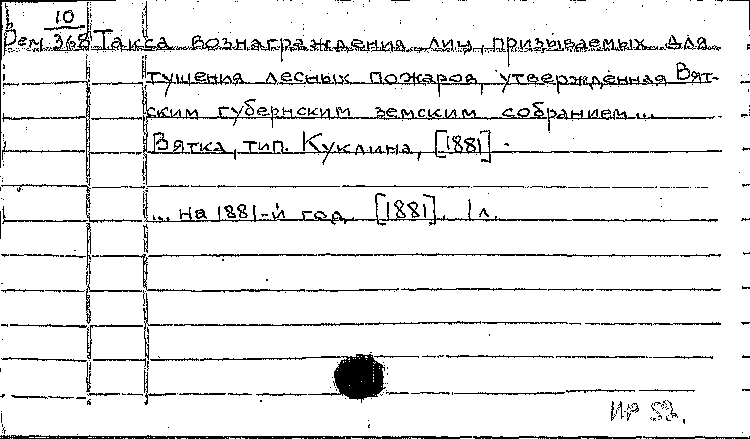 10
Рем 368 Такса вознаграждения лиц, призываемых для
тушения лесных пожаров, утвержденная Вят-
ским губернским земским собранием...
Вятка, тип. Куклина, [1881].
... на 1881-й год. [1881]. 1 л.